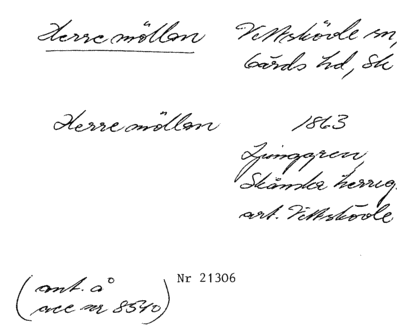 Herremöllan Vittskövle sn,
Gärds hd, Sk
Herremöllan 1863
Ljunggren,
Skånska herreg.
art. Vittskövle
(ant. å
acc nr 8540)
Nr 21306